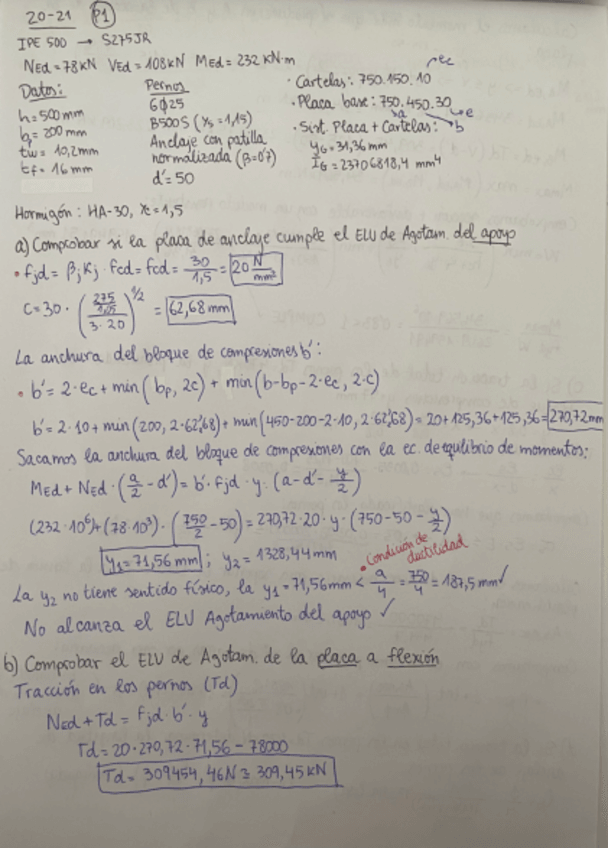 20-21 P1
IPE 500 → S275JR
NEd=78KN VEd=108KN MEd=232 KN·m
Datos:
h=500mm
b=200mm
tw=10,2mm
tf=16mm
Pernos
6φ25
B500S (γs=1,15)
Anclaje con patilla
normalizada (β=0'7)
d'=50
ec
· Cartelas: 750.150.10
· Placa base: 750.450.30
a b e
· Sist. Placa + Cartelas:
yG=31,36mm
IG=23706818,4 mm⁴
Hormigón: HA-30, γc=1,5
a) Comprobar si la placa de anclaje cumple el ELU de Agotam. del apoyo
· fjd = βj Kj · fcd = fcd = 30/1,5 = 20 N/mm²
c=30·((275/1,05)/(3·20))^1/2 = 62,68mm
La anchura del bloque de compresiones b':
· b'= 2·ec + min(bp, 2c) + min(b-bp-2·ec, 2·c)
b'= 2·10+min(200, 2·62,68)+min(450-200-2·10, 2·62,68)=20+125,36+125,36=270,72mm
Sacamos la anchura del bloque de compresiones con la ec. de equlibrio de momentos:
MEd + NEd·(a/2 - d') = b'·fjd·y·(a-d'-y/2)
(232·10⁶)+(78·10³)·(750/2 - 50)=270,72·20·y·(750-50-y/2)
y1=71,56mm ; y2=1328,44mm
· Condición de
ductilidad
La y2 no tiene sentido físico, la y1=71,56mm < a/4 = 750/4 = 187,5mm ✓
No alcanza el ELU Agotamiento del apoyo ✓
b) Comprobar el ELU de Agotam. de la placa a flexión
Tracción en los pernos (Td)
NEd + Td = fjd·b'·y
Td=20·270,72·71,56-78000
Td= 309454,46N ≅ 309,45KN